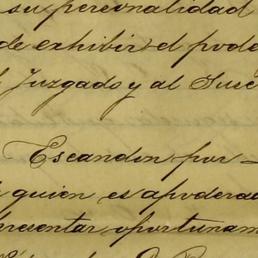 su personalidad
de exhibir el pode
l Juzgado y al Susc
Escandon por
quien es apoderad
presentar oportunam